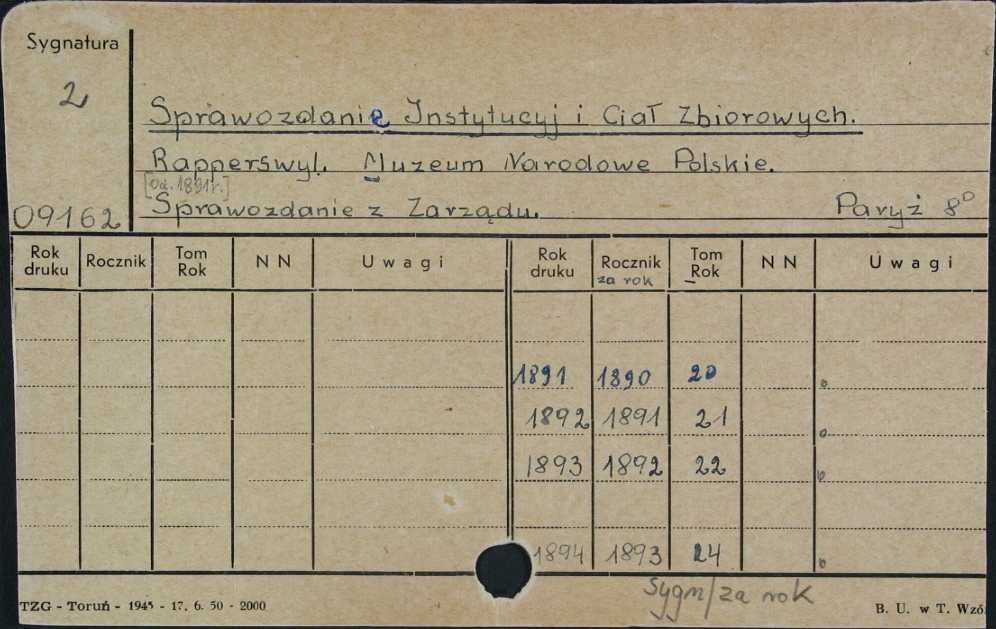 Sygnatura
2
Sprawozdanie Instytucyj i Ciał Zbiorowych.
Rapperswyl. Muzeum Narodowe Polskie.
[od. 1891 r.]
09162 Sprawozdanie z Zarządu. Paryż 8°
Rok druku Rocznik Tom Rok N N Uwagi Rok druku Rocznik za rok Tom Rok N N Uwagi
1891 1890 20
1892 1891 21
1893 1892 22
1894 1893 24
sygn/za rok
TZG - Toruń - 1945 - 17. 6. 50 - 2000 B. U. w T. Wzó